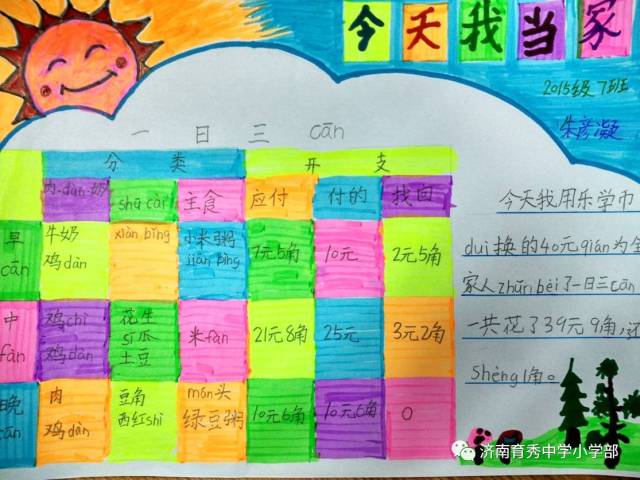 今天我当家
2015级7班
朱彦凝
一日三cān
分类 开支
肉·dàn·奶 shū cài 主食 应付 付的 找回
早cān 牛奶 鸡dàn xiàn bǐng 小米粥 jiān bǐng 7元5角 10元 2元5角
中fàn 鸡chì 鸡dàn 花生 sī瓜 土豆 米fàn 21元8角 25元 3元2角
晚cān 肉 鸡dàn 豆角 西红shì mán头 绿豆粥 10元6角 10元6角 0
今天我用乐学币
duì换的40元qián为全
家人zhǔn bèi了一日三cān
一共花了39元9角,还
shèng1角。
济南育秀中学小学部